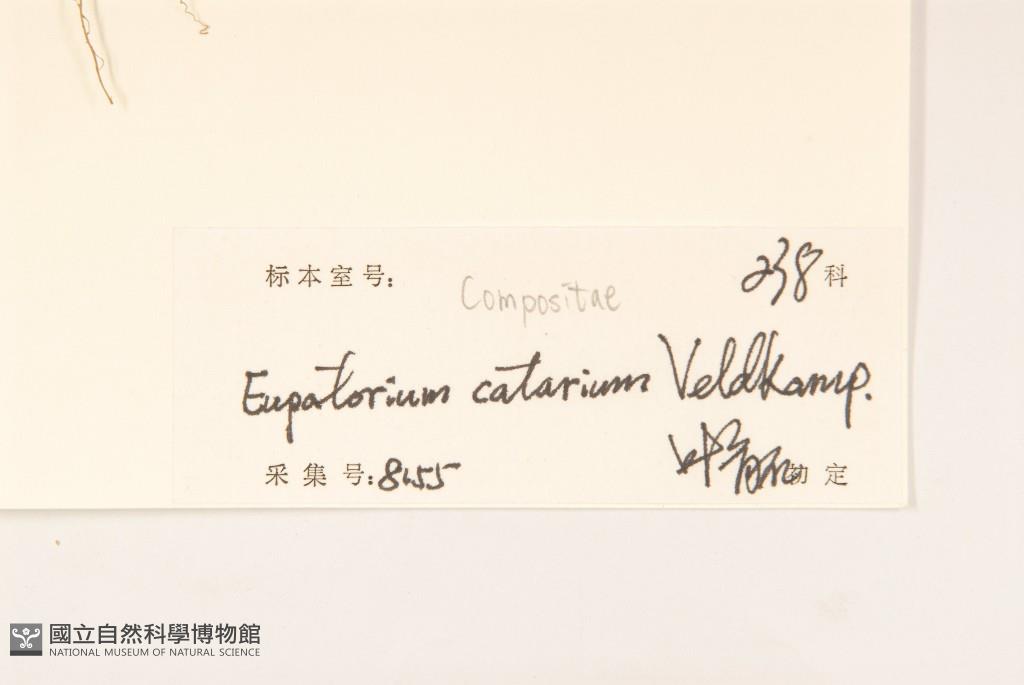 标本室号:
238科
Compositae
Eupatorium catarium Veldkamp.
采集号:8455
叶育 定
國立自然科學博物館
NATIONAL MUSEUM OF NATURAL SCIENCE